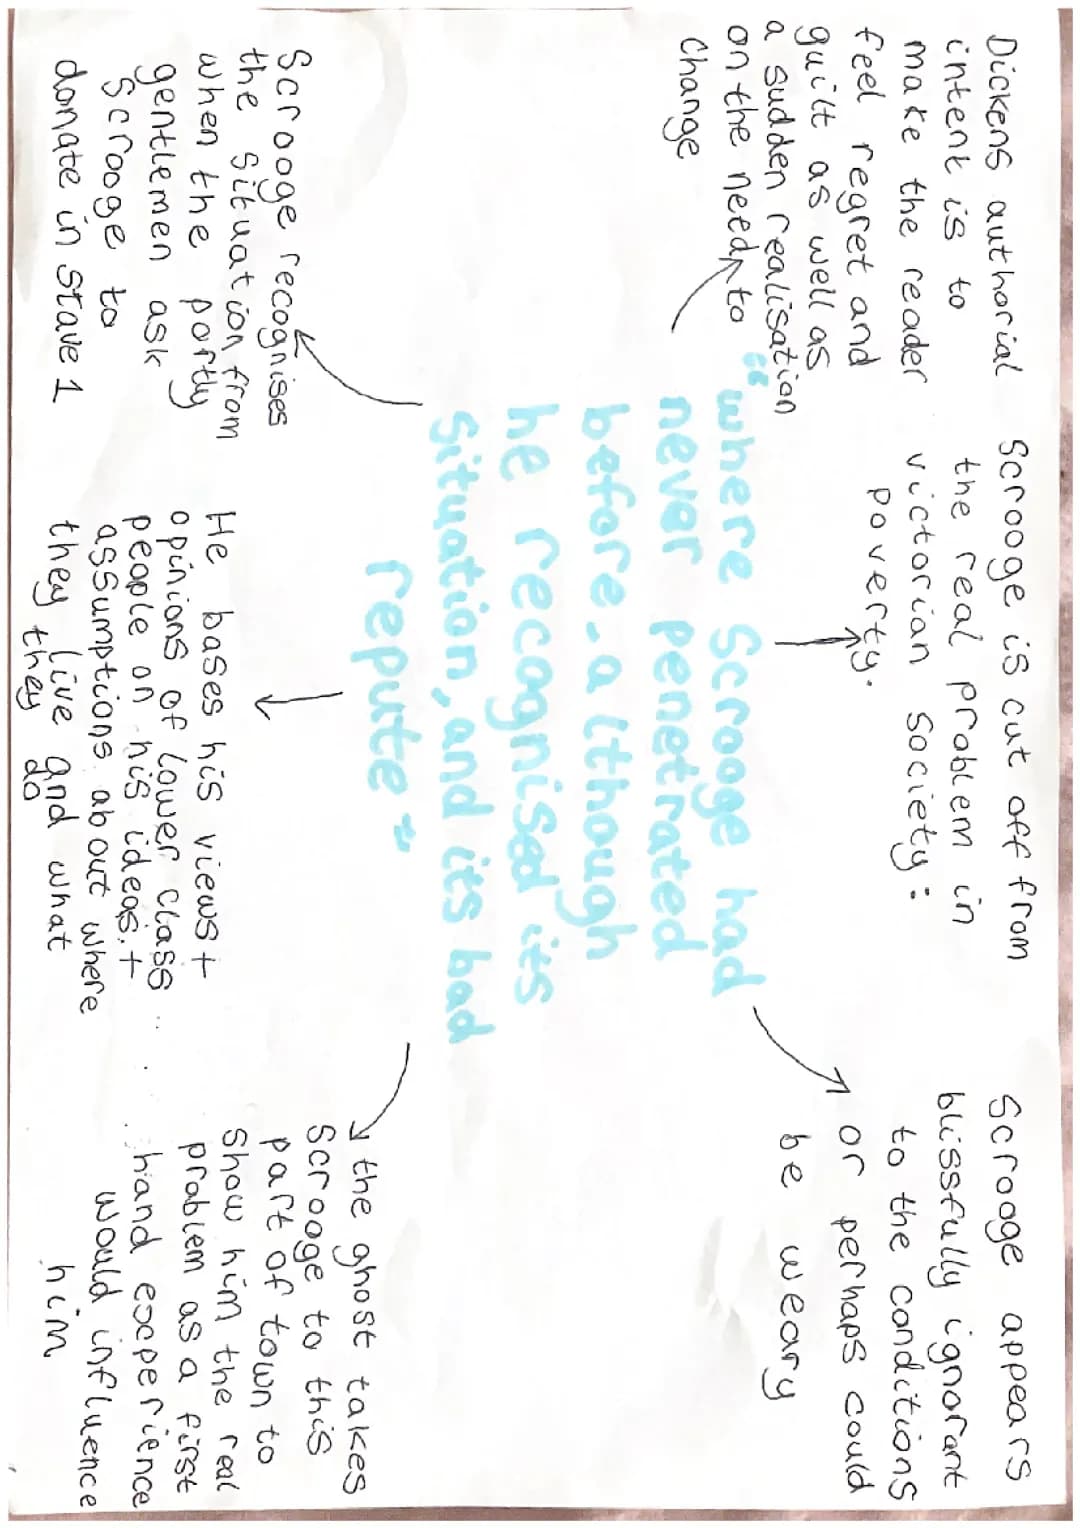 Dickens authorial
intent is to
make the reader
feel regret and
guilt as well as
a sudden realisation
on the need to
change
Scrooge is cut off from
the real problem in
victorian society:
poverty.
Scrooge appears
blissfully ignorant
to the conditions
or perhaps could
be weary
"where Scrooge had
never penetrated
before - although
he recognised its
situation, and its bad
repute"
Scrooge recognises
the situation from
when the portly
gentlemen ask
Scrooge to
donate in stave 1
He bases his views +
opinions of lower class
people on his ideas +
assumptions about where
they live and what
they do
the ghost takes
Scrooge to this
part of town to
show him the real
problem as a first
hand experience
would influence
him